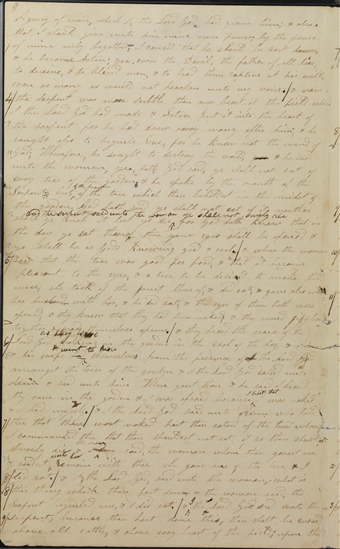 agency of man, which I, the Lord God, had given him; & also
that I should give unto him mine own power; by the power
of mine only begotten I caused that he should be cast down,
& he became Satan; yea, even the Devil, the father of all lies
to deceive, & to blind men, & to lead them captive at his will
even as many as would not hearken unto my voice. & now
the serpent was more subtle than any beast of the field which
I the Lord God had made & Satan put it into the heart of
the serpent for he had drew away many after him; & he
sought also to beguile Eve, for he knew not the mind of
God; Therefore, he sought to destroy the world, & he said
unto the woman, yea, hath God said, ye shall not eat of
every tree of the garden; & he spake by the mouth of the
serpent
of the fruit of the tree which thou beholdest in the midst of
the garden, God hath said ye shall not eat of it neither
And the serpent said unto the woman ye shall not surely die
for God doth know that in
the day ye eat thereof, then your eyes shall be opened &
ye shall be as Gods knowing good & evil; & when the woman
saw that the tree was good for food, & that it became
pleasant to the eyes, & a tree to be desired to make her
wise, she took of the fruit thereof, & did eat, & gave also unto
her husband with her, & he did eat; & the eyes of them both were
opened & they knew that they had been naked; & they sewed fig leaves
together
walking in the garden in the cool of the day; & Adam
& his wife & went to hide themselves from the presence of the Lord God
amongst the trees of the garden; & the Lord God called unto
Adam & said unto him Where goest thou & he said I heard
thy voice in the garden & I was afraid because I was naked
& I hid myself & the Lord God said unto Adam who told
thee that thou wast naked hast thou eaten of the tree whereof
I commanded thee that thou shouldest not eat, if so thou shouldest
surely die & the man said, the woman whom thou gavest me
remain with me she gave me of the tree & I
did eat; & the Lord God, said unto the woman, what is
this thing which thou hast done & the woman said, the
serpent beguiled me, & I did eat; & I the Lord God said unto the
serpent, because thou hast done this, thou shalt be cursed
above all cattle, & above every beast of the field; upon thy